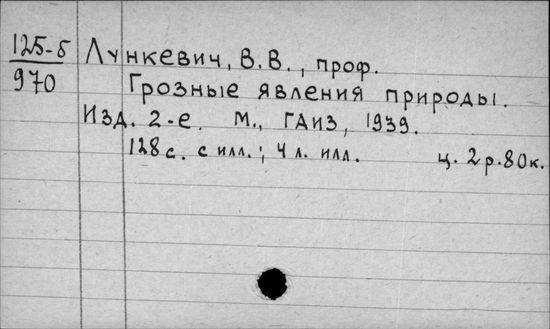 125-б
970
Лункевич, В.В., проф.
Грозные явления природы.
Изд. 2-е. М., ГАИЗ, 1939.
128 с. с илл.; 4 л. илл. ц. 2 р. 80 к.